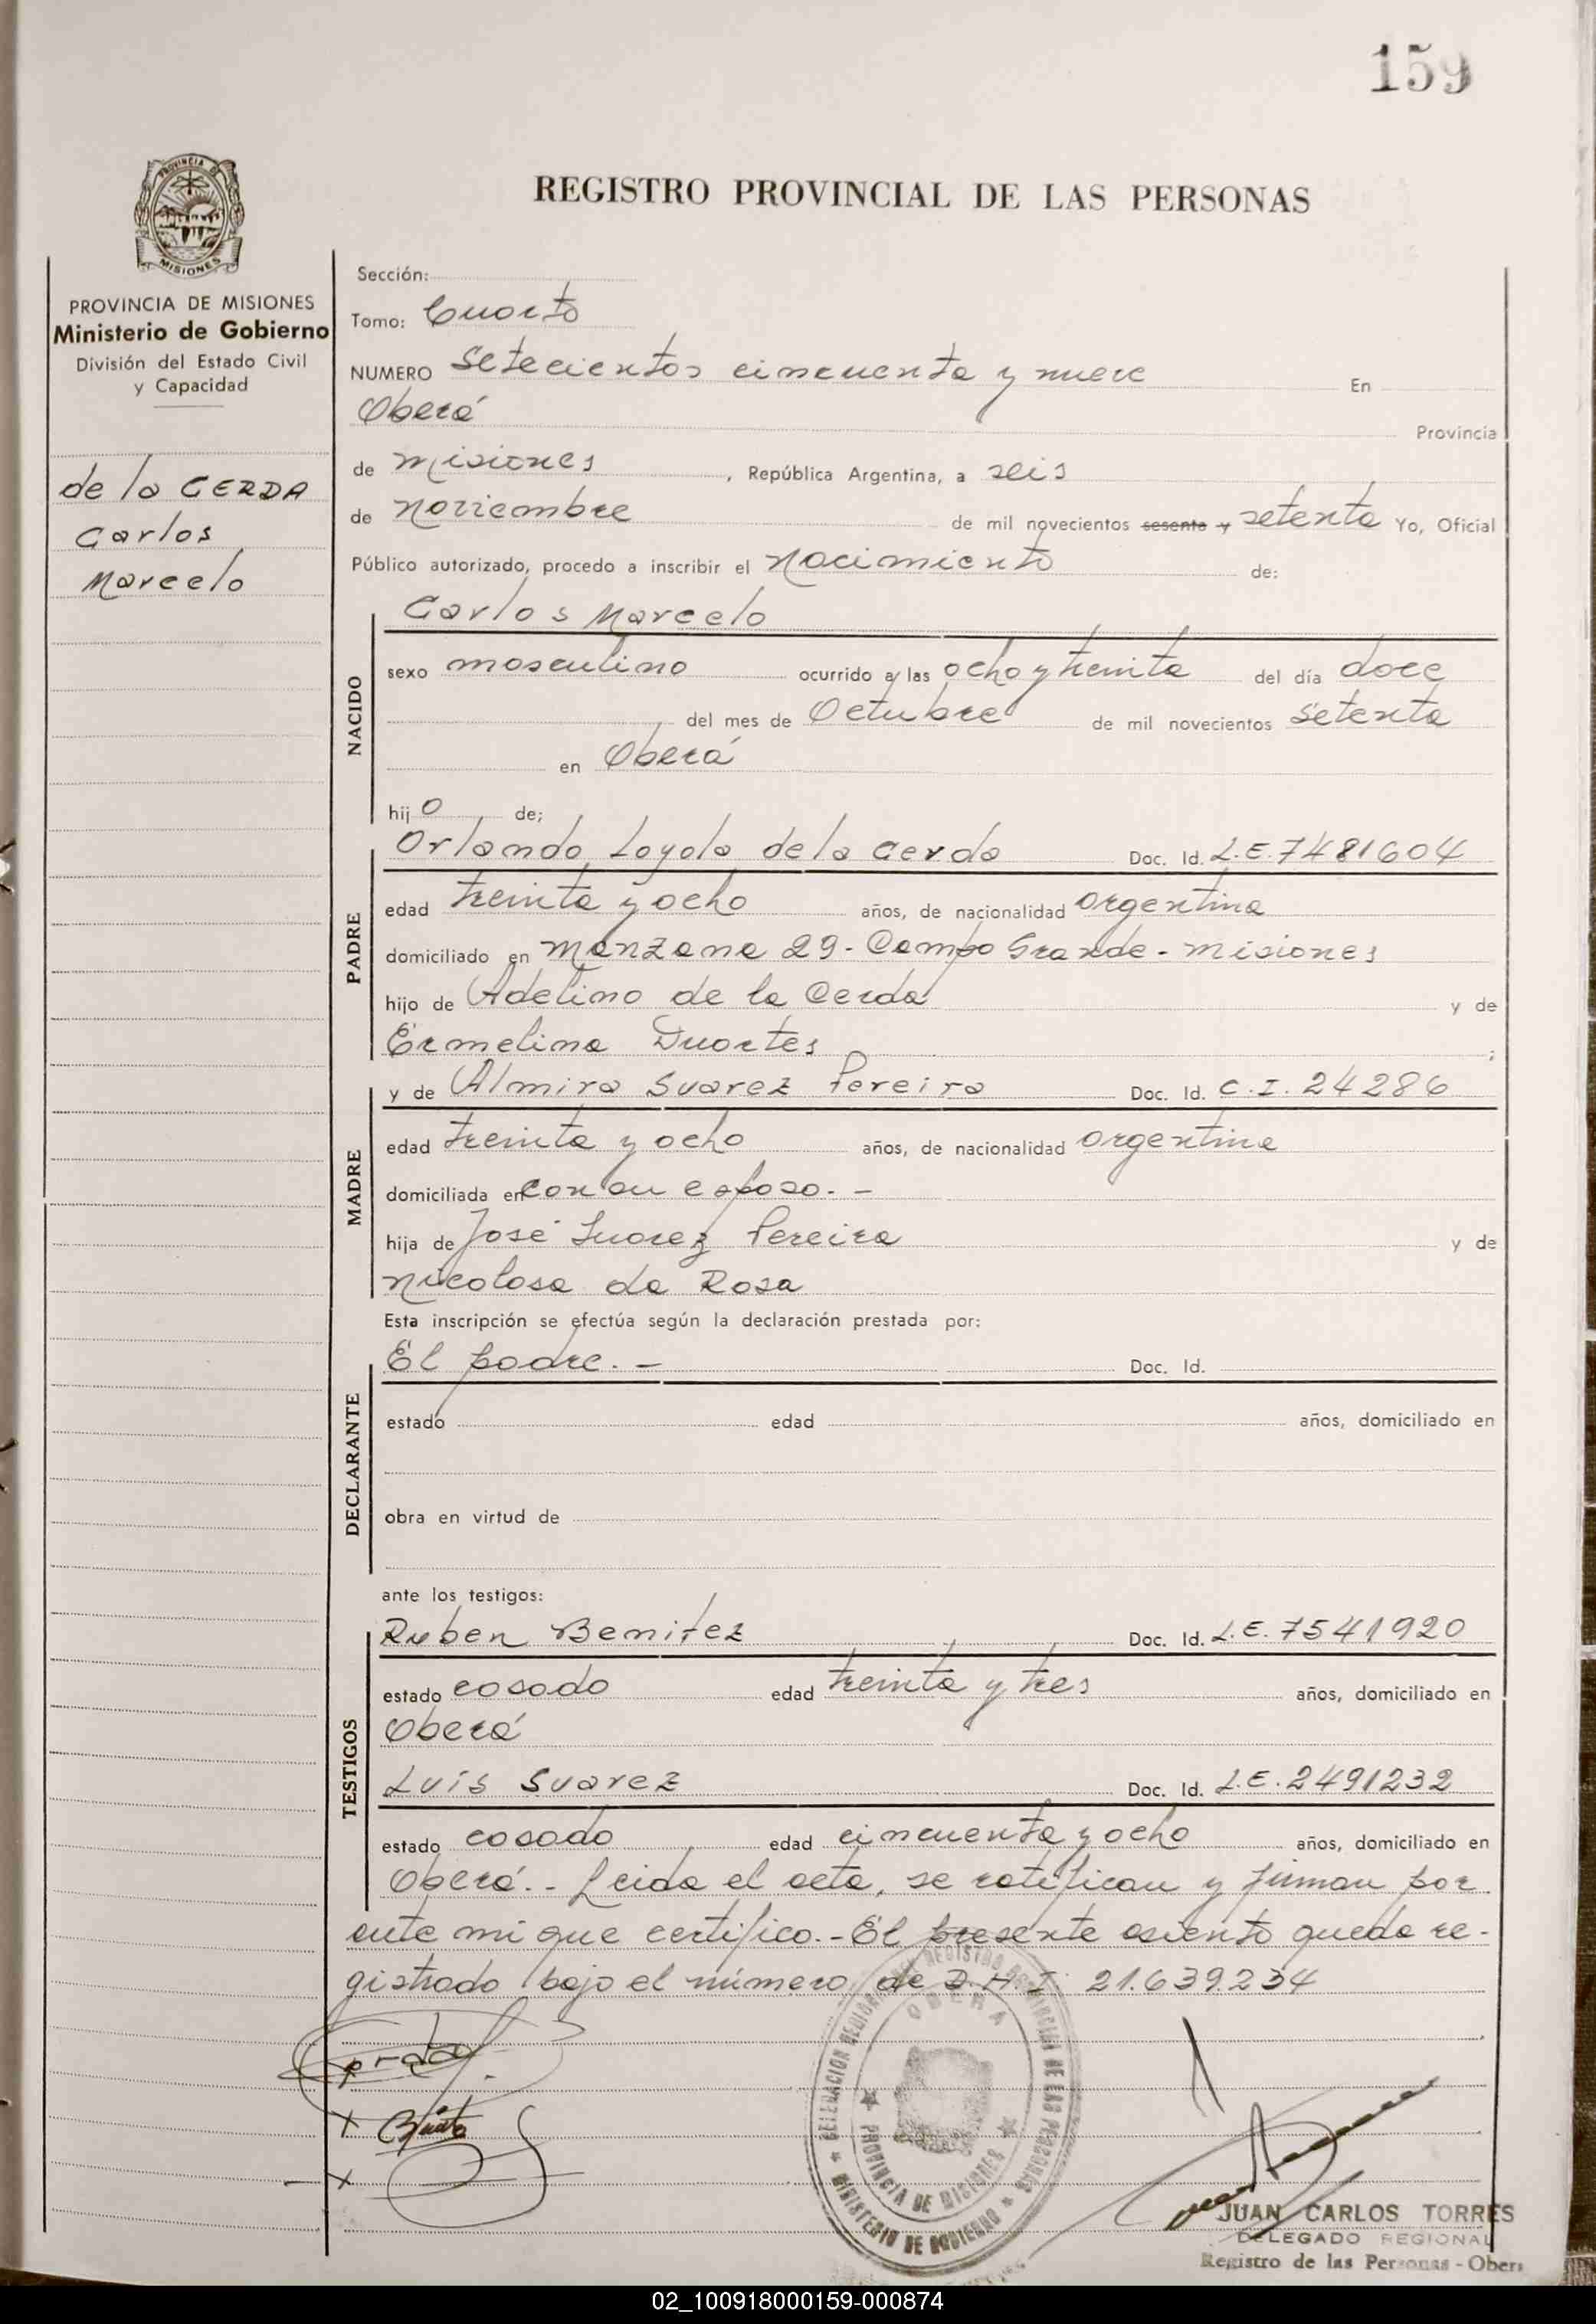 159
PROVINCIA DE
MISIONES
REGISTRO PROVINCIAL DE LAS PERSONAS
PROVINCIA DE MISIONES
Ministerio de Gobierno
División del Estado Civil
y Capacidad
de la CERDA
Carlos
Marcelo
Sección:
Tomo: Cuarto
NUMERO Setecientos cincuenta y nueve En
Oberá Provincia
de Misiones, República Argentina, a seis
de Noviembre de mil novecientos sesenta y setenta Yo, Oficial
Público autorizado, procedo a inscribir el Nacimiento de:
Carlos Marcelo
NACIDO
sexo masculino ocurrido a las ocho y treinta del día doce
del mes de Octubre de mil novecientos Setenta
en Oberá
hijo de;
Orlando Loyola de la Cerda Doc. Id. L.E. 7481604
PADRE
edad treinta y ocho años, de nacionalidad argentina
domiciliado en Manzana 29 - Campo Grande - Misiones
hijo de Adelino de la Cerda y de
Ermelina Duartes;
y de Almira Suarez Pereira Doc. Id. C.I. 24286
MADRE
edad treinta y ocho años, de nacionalidad argentina
domiciliada en con su esposo. -
hija de José Suarez Pereira y de
Nicolasa da Rosa
Esta inscripción se efectúa según la declaración prestada por:
El padre. - Doc. Id.
DECLARANTE
estado edad años, domiciliado en
obra en virtud de
ante los testigos:
Ruben Benitez Doc. Id. L.E. 7541920
TESTIGOS
estado casado edad treinta y tres años, domiciliado en
Oberá
Luis Suarez Doc. Id. L.E. 2491232
estado casado edad cincuenta y ocho años, domiciliado en
Oberá. - Leida el acta, se ratifican y firman por
ante mi que certifico. - El presente asiento queda re-
gistrado bajo el número de D.N.I. 21.639.234
DELEGACION REGIONAL DEL REGISTRO PROVINCIAL DE LAS PERSONAS
OBERA
PROVINCIA DE MISIONES
MINISTERIO DE GOBIERNO
JUAN CARLOS TORRES
DELEGADO REGIONAL
Registro de las Personas - Obera
02_100918000159-000874